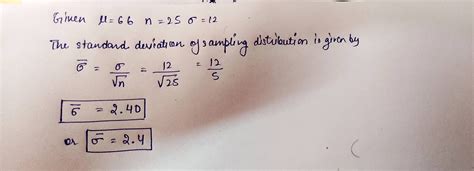 Given μ = 66 n = 25 σ = 12
The standard deviation of sampling distribution is given by
σ̅ = σ/√n = 12/√25 = 12/5
σ̅ = 2.40
or σ̅ = 2.4